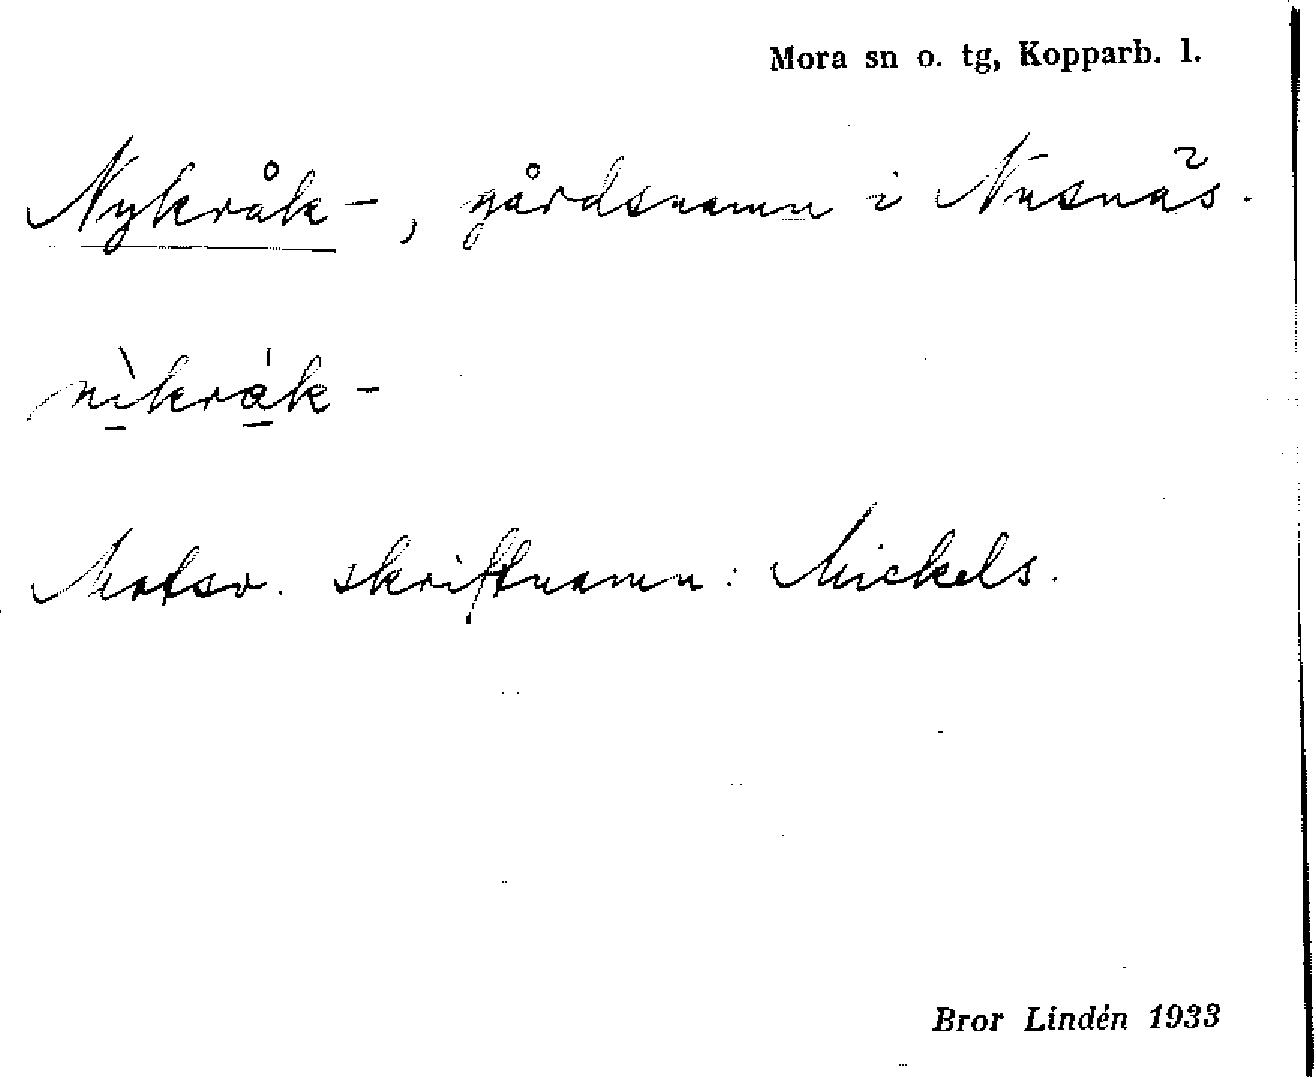 Mora sn o. tg, Kopparb. l.
Nykråk-, gårdsnamn i Nusnäs.
nìkrák-
Motsv. skriftnamn: Mickels.
Bror Lindén 1933